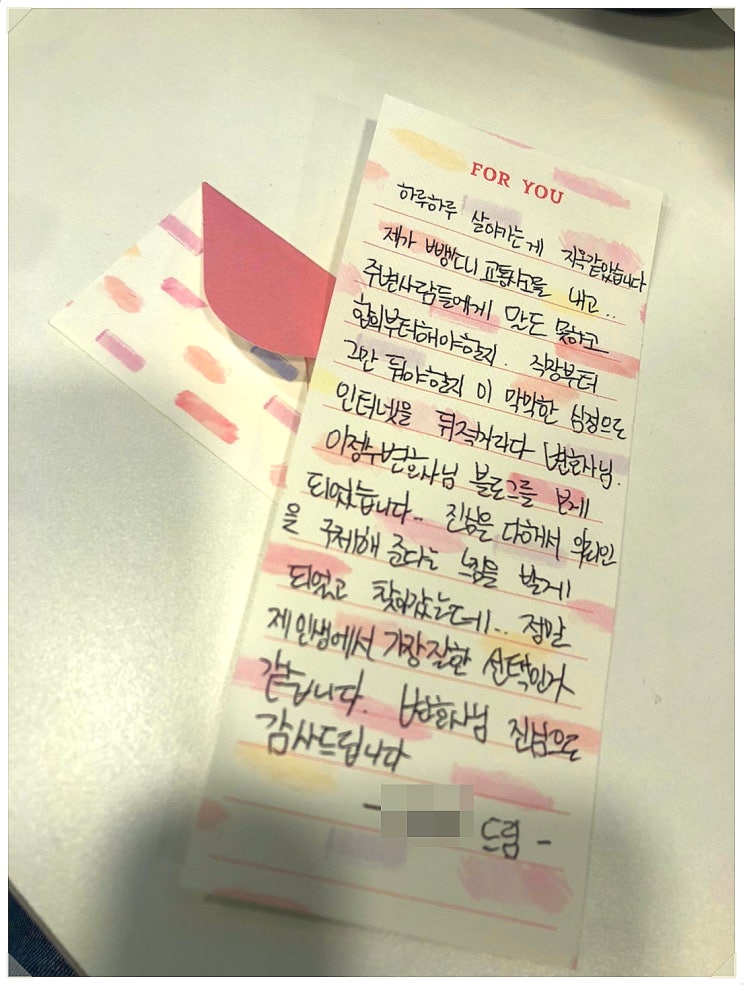 FOR YOU
하루하루 살아가는게 지옥같았습니다
제가 뺑소니 교통사고를 내고..
주변사람들에게 말도 못하고
합의부터해야할지. 직장부터
그만 둬야할지 이 막막한 심정으로
인터넷을 뒤적거리다 변호사님.
이정수변호사님 블로그를 보게
되었습니다.. 진심을 다해서 의뢰인
을 구제해 준다는 느낌을 받게
되었고 찾아갔는데.. 정말
제 인생에서 가장 잘한 선택인거
같습니다. 변호사님 진심으로
감사드립니다
- 드림 -